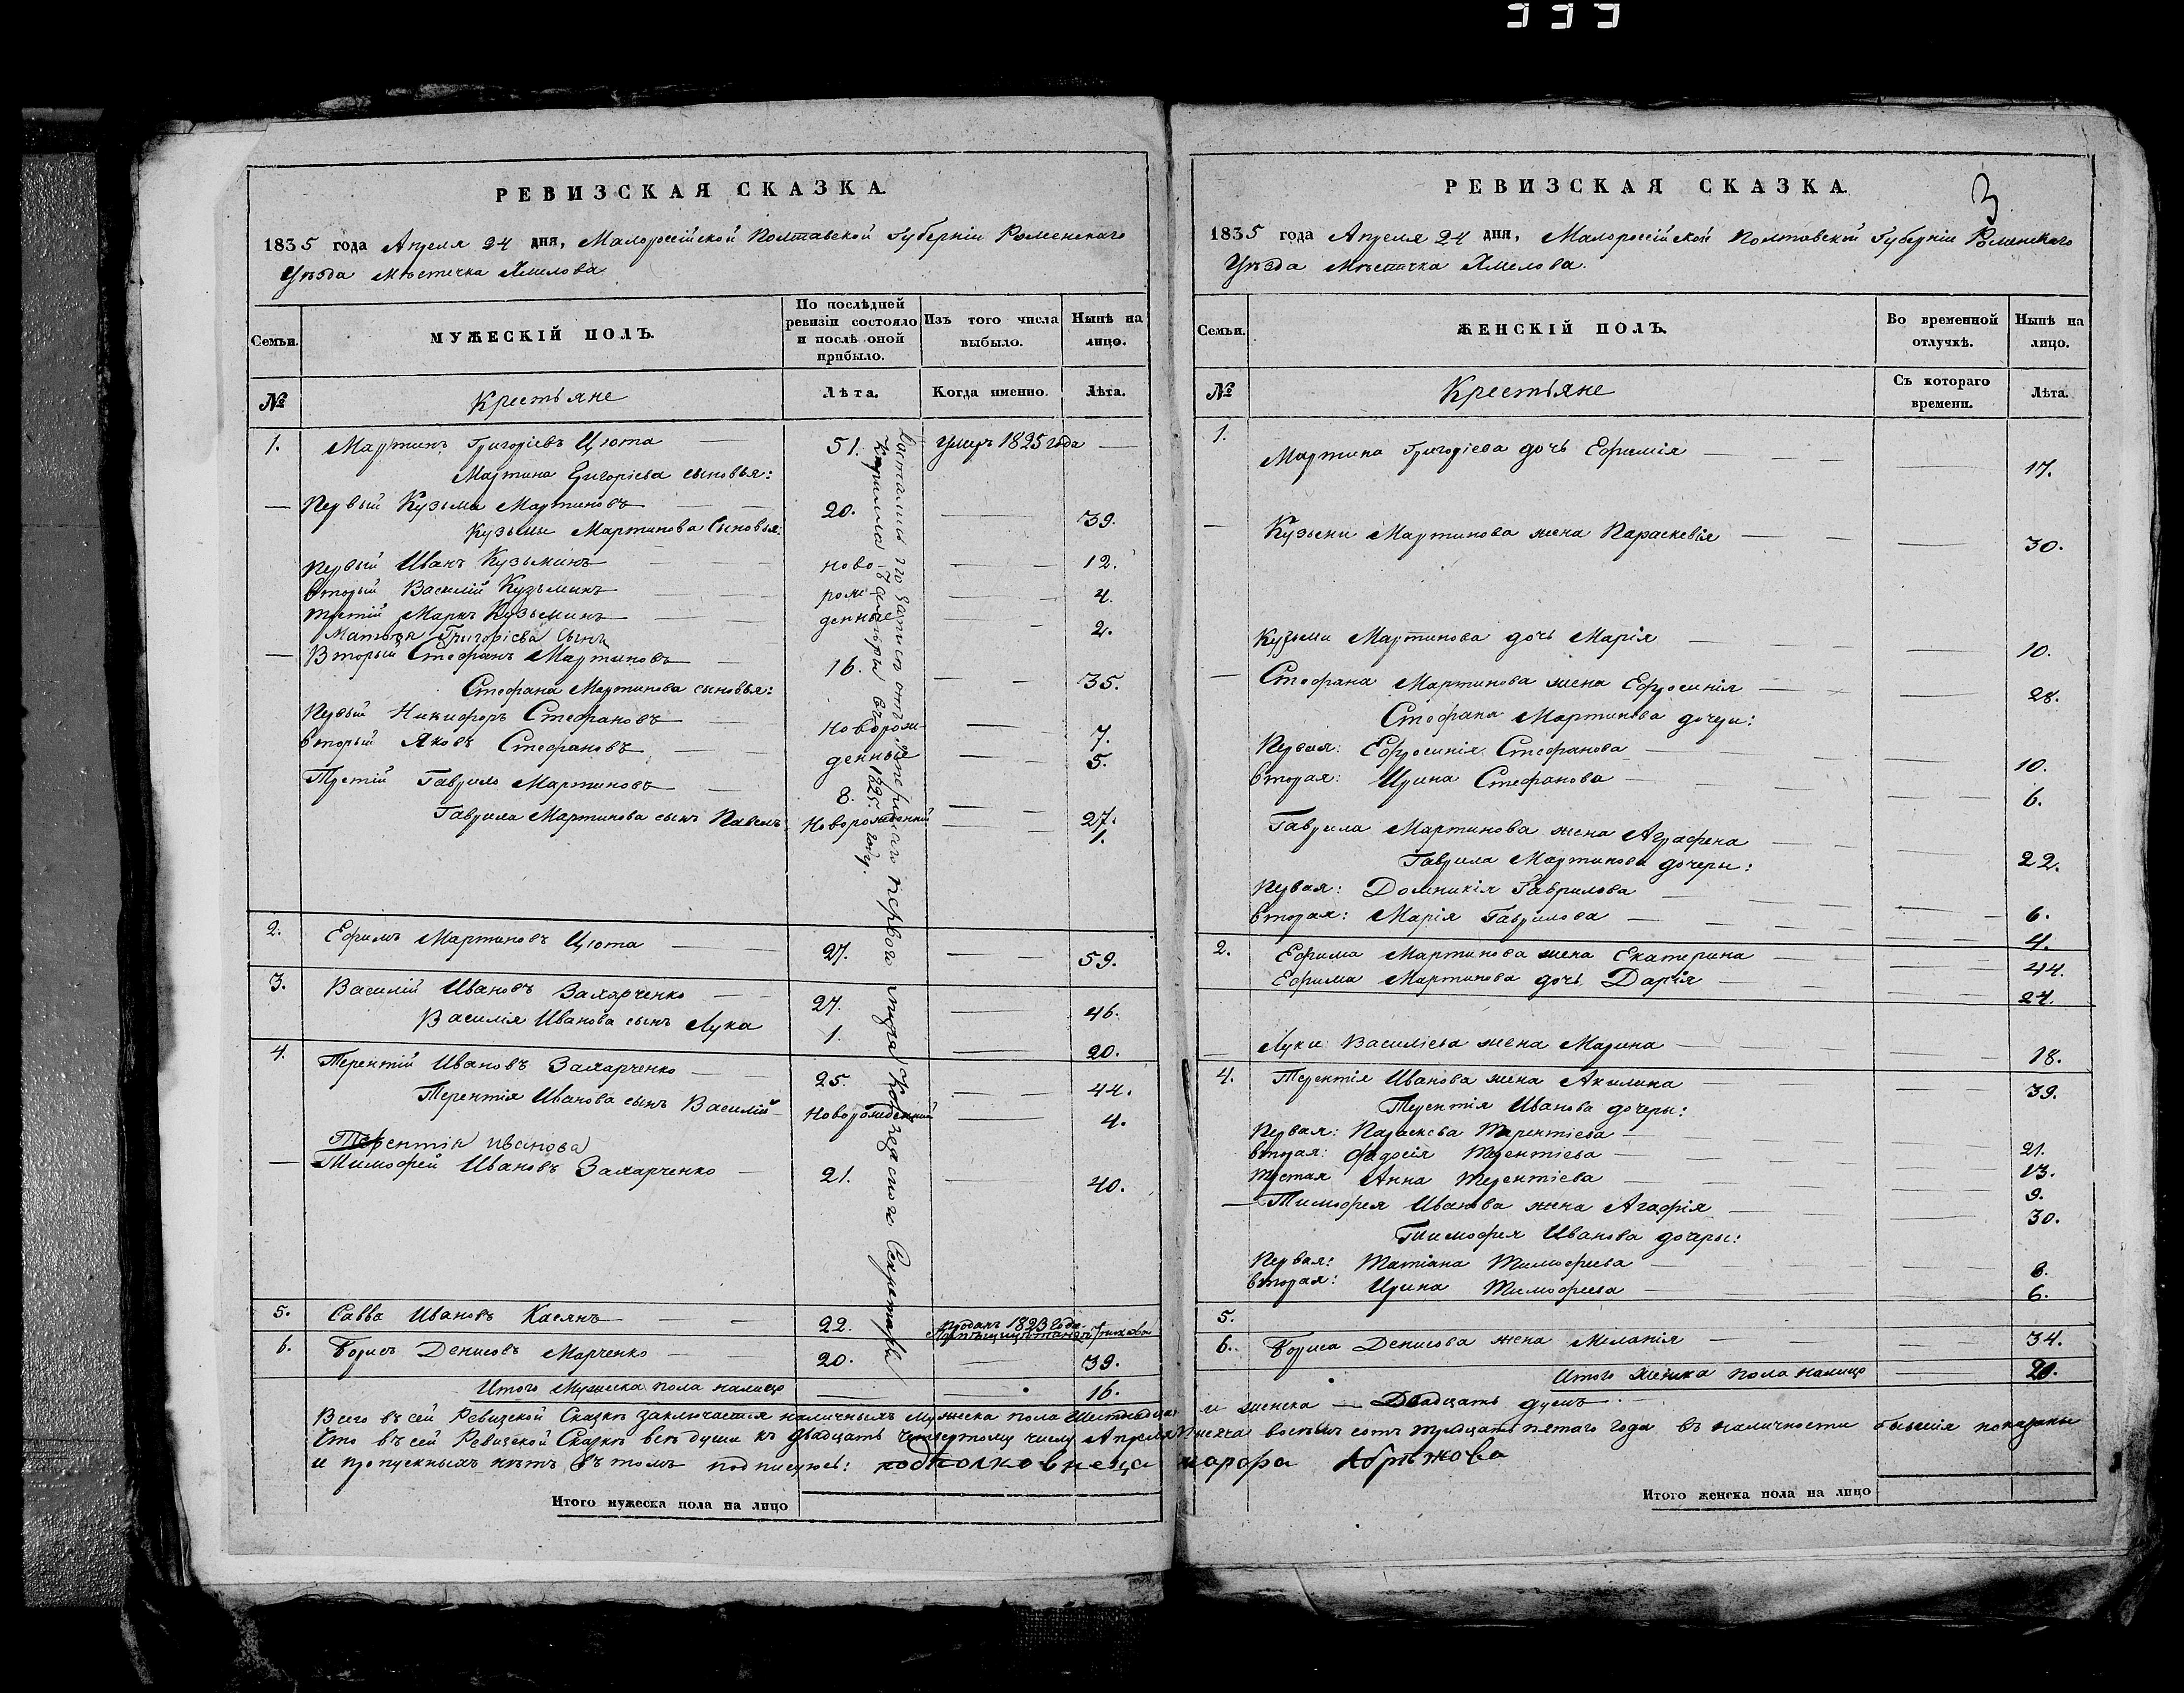 333
РЕВИЗСКАЯ СКАЗКА
1835 года Апреля 24 дня, Малороссійской Полтавской Губерніи Роменскаго
Уѣзда Мѣстечка Хмелова
Семьи.
МУЖЕСКІЙ ПОЛЪ.
По послѣдней ревизіи состояло и послѣ оной прибыло.
Изъ того числа выбыло.
Нынѣ на лицо.
№
Крестьяне
Лѣта.
Когда именно.
Лѣта.
1. Мартинъ Григоріевъ Цюта 51. Умеръ 1825 года
Мартина Григоріева сыновья:
Первый Кузьма Мартиновъ 20. 39.
Кузьмы Мартинова Сыновья:
Первый Иванъ Кузьминъ ново 12.
Вторый Василій Кузьминъ рож 4.
Третій Марко Кузьминъ денные 2.
Григоріева сынъ
Вторый Стефанъ Мартиновъ 16. 35.
Стефана Мартинова сыновья:
Первый Никифоръ Стефановъ Новорож 7.
Вторый Яковъ Стефановъ денный 5.
Третій Гаврило Мартиновъ 8. 27.
Гаврила Мартинова сынъ Павелъ Новорожденный 1.
2. Ефимъ Мартиновъ Цюта 27. 59.
3. Василій Ивановъ Захарченко 27. 46.
Василія Иванова сынъ Лука 1. 20.
4. Терентій Ивановъ Захарченко 25. 44.
Терентія Иванова сынъ Василій Новорожденный 4.
Терентія Иванова
Тимофей Ивановъ Захарченко 21. 40.
5. Савва Ивановъ Касянъ 22. Проданъ 1823 года
6. Борисъ Денисовъ Марченко 20. 39.
Итого Мужеска пола налицо 16.
Достались по записъ отъ перваго Секретаря
Кирилла въ 1825 году.
РЕВИЗСКАЯ СКАЗКА
3
1835 года Апреля 24 дня, Малороссійской Полтавской Губерніи Роменскаго
Уѣзда Мѣстечка Хмелова.
Семьи.
ЖЕНСКІЙ ПОЛЪ.
Во временной отлучкѣ.
Нынѣ на лицо.
№
Крестьяне
Съ котораго времени.
Лѣта.
1. Мартина Григоріева дочь Ефимія 17.
Кузьмы Мартинова жена Параскевія 30.
Кузьмы Мартинова дочь Марія 10.
Стефана Мартинова жена Ефросинія 28.
Стефана Мартинова дочери:
Первая: Ефросинія Стефанова 10.
Вторая: Ирина Стефанова 6.
Гаврила Мартинова жена Аграфена 22.
Гаврила Мартинова дочери:
Первая: Домникія Гаврилова 6.
Вторая: Марія Гаврилова 4.
2. Ефима Мартинова жена Екатерина 44.
Ефима Мартинова дочь Дарія 24.
Луки Василіева жена Марина 18.
4. Терентія Иванова жена Акилина 39.
Терентія Иванова дочеры:
Первая: Параскева Терентіева 21.
Вторая: Федосія Терентіева 13.
Третая Анна Терентіева 9.
Тимофея Иванова жена Агафія 30.
Тимофея Иванова дочеры:
Первая: Татіана Тимофеева 8.
Вторая: Ирина Тимофеева 6.
5.
6. Бориса Денисова жена Меланія 34.
Итого женска пола налицо 20.
Всего въ сей Ревизской Сказкѣ заключается наличныхъ мужеска пола Шестнадцать и женска Двадцать душъ
Что въ сей Ревизской Сказкѣ всѣ души къ двадцать четвертому числу Апреля тысяча восемь сотъ тридцать пятаго года въ наличности бывшія показаны
и пропускныхъ нѣтъ въ томъ подписуюсь:
Итого мужеска пола на лицо
Итого женска пола на лицо